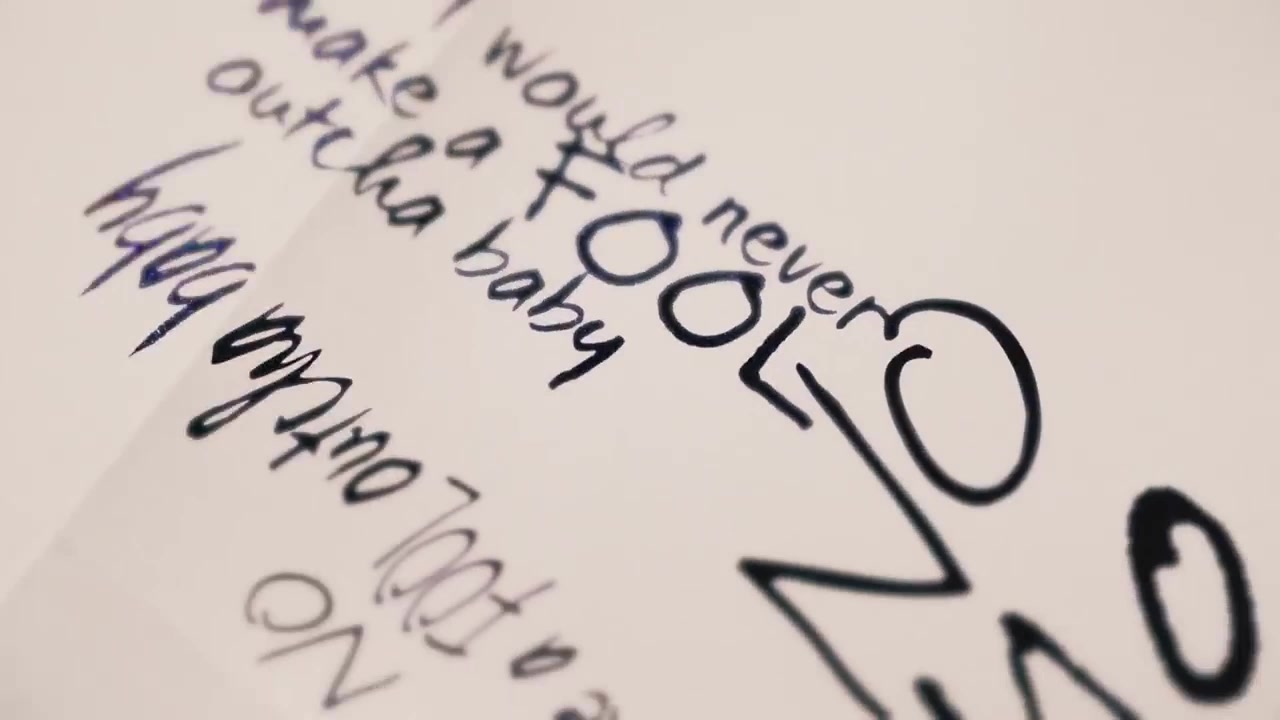 I would never
make a FOOL
outcha baby
NO
NO
a FOOL outcha baby
NO